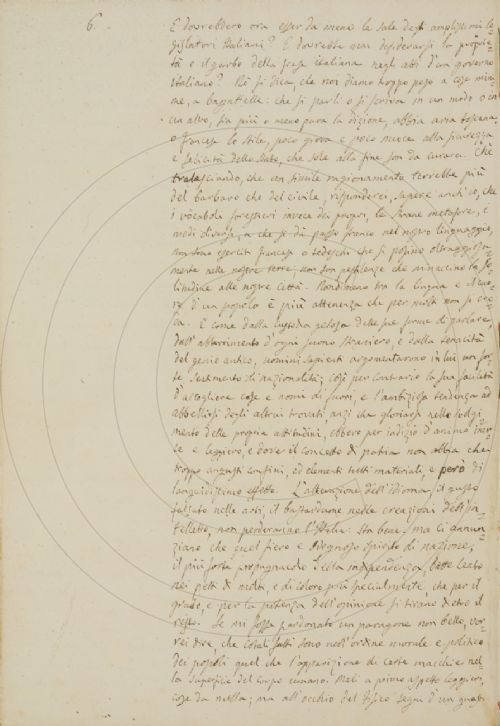 6.
E dovrebbero ora esser da meno le sale degli amplissimi le-
gislatori Italiani? E dovrebbe mai desiderarsi la proprie-
tà e il garbo della frase italiana negli atti d'un governo
Italiano? Nè si dica, che noi diamo troppo peso a cose mini-
me, a bagattelle: che si parli o si scriva in un modo o in
un altro, sia più o meno pura la dizione, abbia aria toscana,
o francese lo stile, poco giova e poco nuoce alla sicurezza
e felicità dello Stato, che sole alla fine son da curare. Chè
tralasciando, che un simile ragionamento terrebbe più
del barbaro che del civile, risponderei, sapere anch'io, che
i vocaboli forestieri invece dei propri, le strane metafore, i
modi diversi, a che si dà passo franco nel nostro linguaggio,
non sono eserciti francesi o tedeschi che si posino oltraggiosa-
mente nelle nostre terre, non son pestilenze che minaccino la so-
litudine alle nostre Città. Nondimeno tra la lingua e il cuo-
re d'un popolo è più attenenza che per molti non si cre-
da. E come dalla custodia gelosa delle sue forme di parlare,
dall'abborrimento d'ogni suono straniero, e dalla tenacità
del genio antico, uomini sapienti argomentarono in lui un for-
te sentimento di nazionalità; così per contrario la sua facilità
d'accogliere cose e nomi di fuori, e l'ambiziosa tendenza ad
abbellirsi degli altrui trovati, anzi che gloriarsi nello svolgi-
mento delle proprie attitudini, ebbero per indizio d'animo iner-
te e leggiero, e dove il concetto di patria non abbia che
troppo angusti confini, ed elementi tutti materiali, e però di
languidissimo effetto. L'alterazione dell'idioma, il gusto
falsato nelle arti, il bastardume nelle creazioni dell'in-
telletto, non perderanno l'Italia: sta bene; ma ci annun-
ziano che quel fiero e disdegnoso spirito di nazione,
il più forte propugnacolo della indipendenza, batte lento
nei petti di molti, e di coloro più specialmente, che per il
grado, e per la potenza dell'opinione si tirano dietro il
resto. Se mi fosse perdonato un paragone non bello, vor-
rei dire, che cotali fatti sono nell'ordine morale e politico
dei popoli quel che l'apparizione di certe macchie nel-
la superficie del corpo umano. Mali a primo aspetto leggieri,
cose da nulla; ma all'occhio del fisico segni d'un guasto